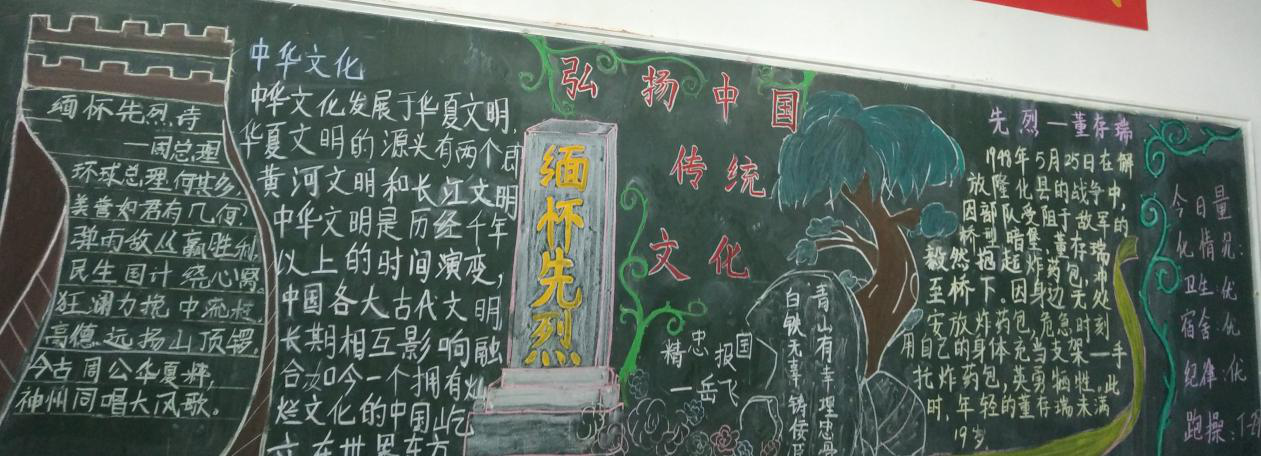 缅怀先烈诗
—周总理
环球总理何其多
美誉如君有几何?
弹雨敌从赢胜利,
民生国计绕心窝。
狂澜力挽中流柱
高德远扬山顶锣。
今古周公华夏粹,
神州同唱大风歌。
中华文化
中华文化发展于华夏文明,
华夏文明的源头有两个即
黄河文明和长江文明
中华文明是历经千年
以上的时间演变,
中国各大古代文明
长期相互影响融
合如今一个拥有灿
烂文化的中国屹
立在世界东方
缅怀先烈
弘扬中国
传统
文化
精忠报国
—岳飞
青山有幸埋忠骨
白铁无辜铸佞臣
先烈—董存瑞
1948年5月25日在解
放隆化县的战争中,
因部队受阻于敌军的
桥到暗堡,董存瑞冲
毅然抱起炸药包,
至桥下。因身边无处
安放炸药包,危急时刻
用自己的身体充当支架一手
托炸药包,英勇牺牲。此
时,年轻的董存瑞未满
19岁
今日量
化情况:
卫生:优
宿舍:优
纪律:优
跑操: